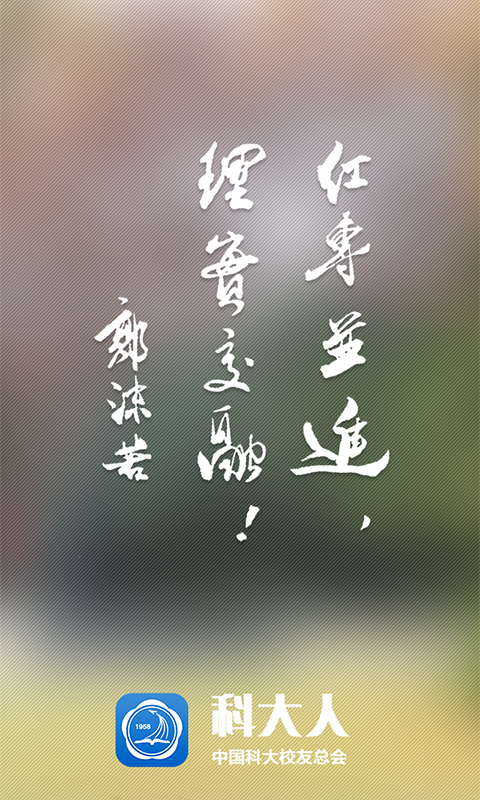 紅專並進，
理實交融！
郭沫若
1958
科大人
中国科大校友总会